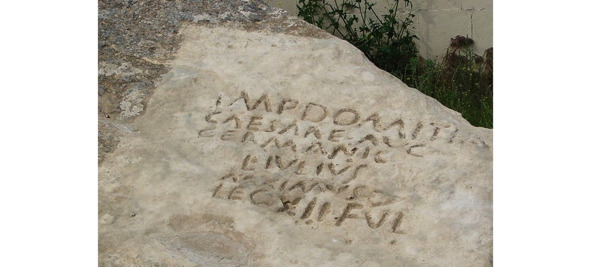 IMPDOMITIA
CAESARE AVG
GERMANIC
LIVLIVS
LEGXII FVL